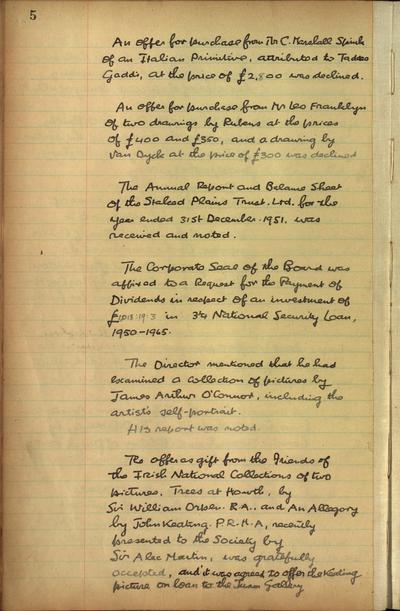 5
An offer for purchase from Mr C. Marshall Spink
of an Italian Primitive, attributed to Taddeo
Gaddi, at the price of £2,800 was declined.
An offer for purchase from Mr Leo Franklyn
of two drawings by Rubens at the prices
of £400 and £350, and a drawing by
Van Dyck at the price of £300 was declined
The Annual Report and Balance Sheet
of the Trust. Ltd. for the
year ended 31st December. 1951. was
received and noted.
The Corporate Seal of the Board was
affixed to a Request for the Payment of
Dividends in respect of an investment of
£1018:19:3 in National Security Loan,
1950-1965.
The Director mentioned that he had
examined a collection of pictures by
James Arthur O'Connor, including the
artist's self-portrait.
His report was noted.
The offer as gift from the Friends of
the Irish National Collections of two
pictures, Trees at Howth, by
Sir William Orpen. R.A. and An Allegory
by John Keating. P.R.H.A, recently
presented to the Society by
Sir Alec Martin, was gratefully
accepted, and it was agreed to offer the Keating
picture on loan to the Tuam Gallery